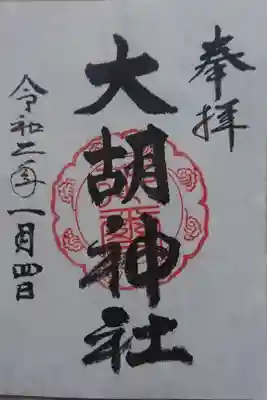 奉拝
大胡神社
令和二年一月四日